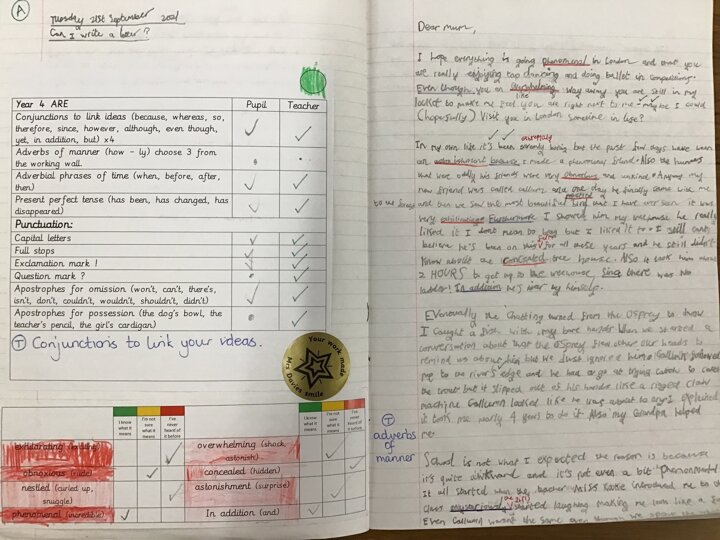 A
Tuesday 21st September 2021
Can I write a letter?
Year 4 ARE
Pupil
Teacher
Conjunctions to link ideas (because, whereas, so,
therefore, since, however, although, even though,
yet, in addition, but) x4
Adverbs of manner (how - ly) choose 3 from
the working wall.
Adverbial phrases of time (when, before, after,
then)
Present perfect tense (has been, has changed, has
disappeared)
Punctuation:
Capital letters
Full stops
Exclamation mark !
Question mark ?
Apostrophes for omission (won't, can't, there's,
isn't, don't, couldn't, wouldn't, shouldn't, didn't)
Apostrophes for possession (the dog's bowl, the
teacher's pencil, the girl's cardigan)
T Conjunctions to link your ideas.
Your work made
Mrs Davies smile
I know what it means
I'm not sure what it means
I've never heard of it before
exhilarating
obnoxious (rude)
nestled (curled up, snuggle)
phenomenal (incredible)
I know what it means
I'm not sure what it means
I've never heard of it before
overwhelming (shock, astonish)
concealed (hidden)
astonishment (surprise)
In addition (and)
Dear mum,
I hope everything is going phenomenal in London and that you
are really enjoying tap dancing and doing ballet in
Even though you an way away you are still in my
like
locket to make me feel you are right next to me maybe I could
(hopefully) Visit you in London sometime in life?
In my own life it's been boring but the past few days have been
an astonishment because I made a friend. Also the humans
that were his friends were very obnoxious and unkind. Anyway my
new friend was called Callum and one day he finally came with me
to the forest
and then we saw the most beautiful bird that I have ever seen it was
very exhilarating Furthermore I showed him my treehouse he really
liked it I don't mean to but I liked it too I still can't
believe he's been on this for all these years and he still didn't
know about the concealed tree house. Also it took him about
2 HOURS to get up to the treehouse, since there was no
ladder! In addition he's by himself.
Eventually the Chatting turned from the Osprey to how
I caught a fish with my bare hands when we started a
conversation about that the Osprey flew over our heads to
remind us about him but we just ignore him Callum followed
me to the river's edge and he had a go at trying catch to catch
the trout but it slipped out of his hands like a rigged claw
machine Callum looked like he was about to cry I explained
it took me nearly 4 years to do it Also my Grandpa helped
me.
T
adverbs
of
manner
School is not what I expected the reason is because
it's quite awkward and it's not even a bit "phenomenal"
It all started when the teacher Miss introduced me to the
class mysteriously started laughing making me look like a
Even Callum wasn't the same even though we